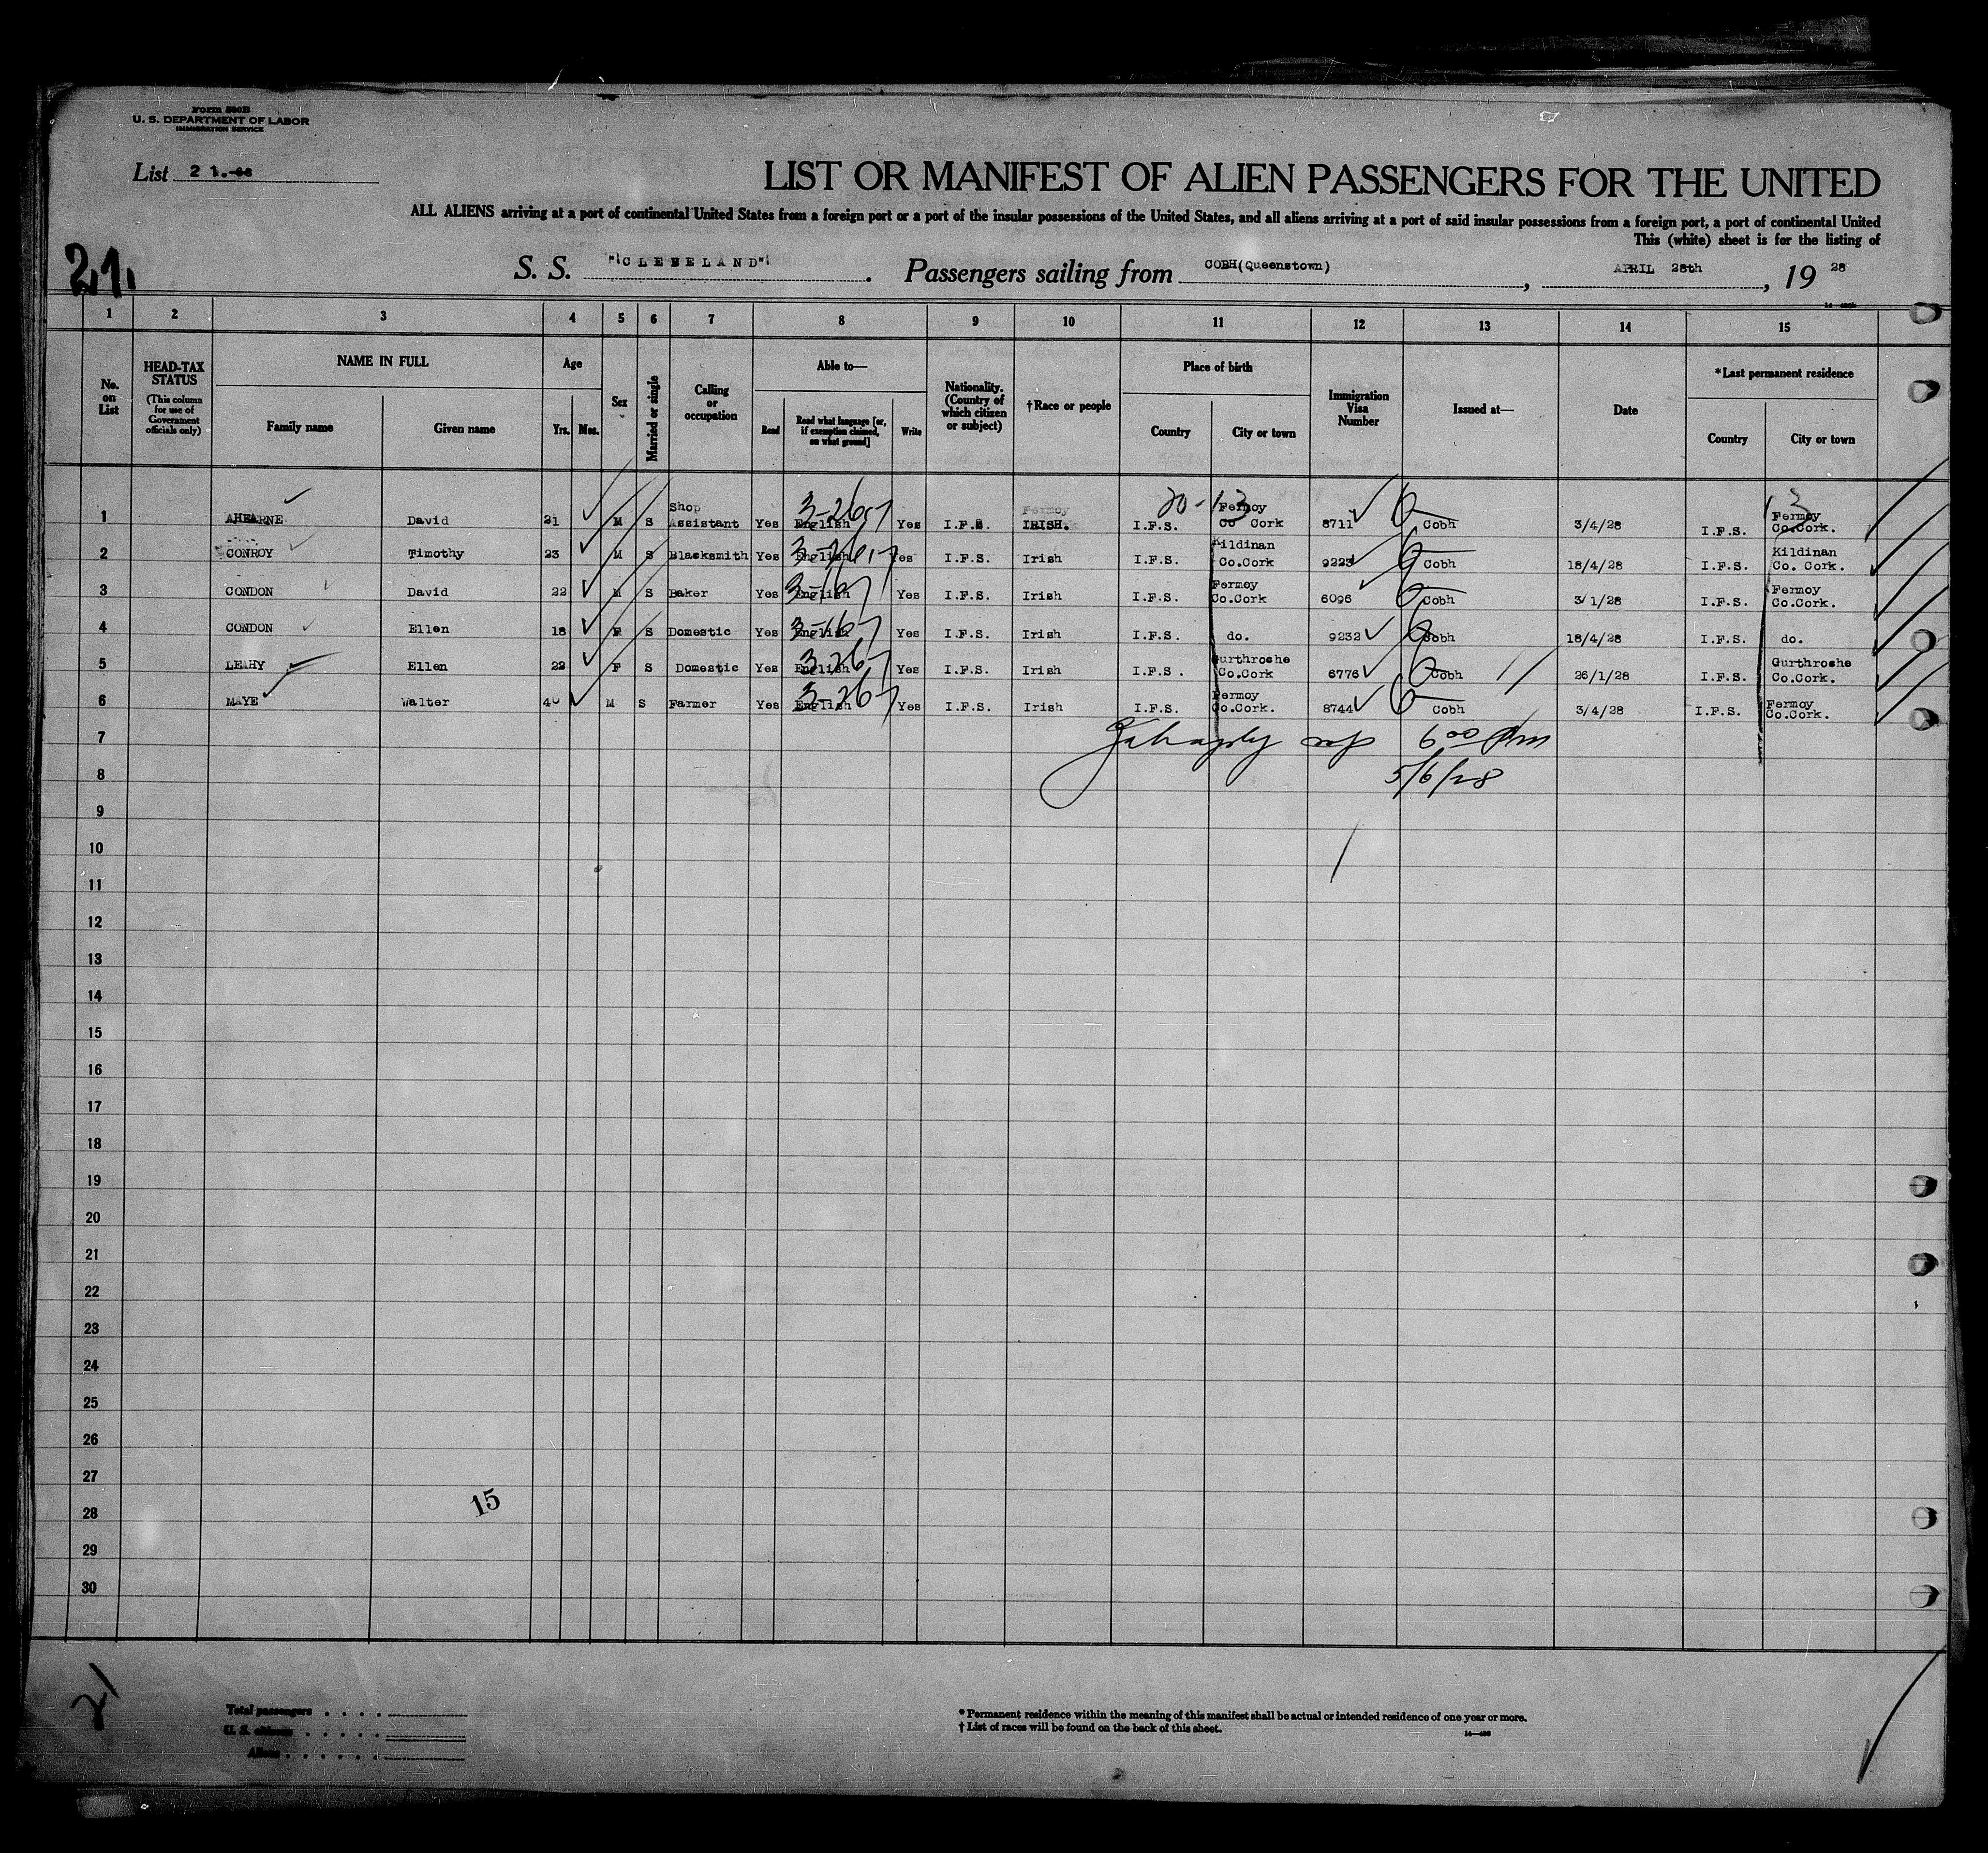 Form 500B
U. S. DEPARTMENT OF LABOR
IMMIGRATION SERVICE
List 21.
LIST OR MANIFEST OF ALIEN PASSENGERS FOR THE UNITED
ALL ALIENS arriving at a port of continental United States from a foreign port or a port of the insular possessions of the United States, and all aliens arriving at a port of said insular possessions from a foreign port, a port of continental United
This (white) sheet is for the listing of
21.
S. S. "CLEVELAND" . Passengers sailing from COBH(Queenstown) , APRIL 28th , 19 28
1 2 3 4 5 6 7 8 9 10 11 12 13 14 15
No. on List
HEAD-TAX STATUS (This column for use of Government officials only)
NAME IN FULL Family name Given name
Age Yrs. Mos.
Sex
Married or single
Calling or occupation
Able to— Read Read what language [or, if exemption claimed, on what ground] Write
Nationality. (Country of which citizen or subject)
†Race or people
Place of birth Country City or town
Immigration Visa Number
Issued at—
Date
*Last permanent residence Country City or town
20-13 3
1 AHEARNE David 21 M S Shop Assistant Yes English 3-267 Yes I.F.S. IRISH. I.F.S. Fermoy Co Cork 8711 Cobh 3/4/28 I.F.S. Fermoy Co.Cork.
2 CONROY Timothy 23 M S Blacksmith Yes English Yes I.F.S. Irish I.F.S. Kildinan Co.Cork 9223 Cobh 18/4/28 I.F.S. Kildinan Co. Cork.
3 CONDON David 22 M S Baker Yes English 3-167 Yes I.F.S. Irish I.F.S. Fermoy Co.Cork 6096 Cobh 3/1/28 I.F.S. Fermoy Co.Cork.
4 CONDON Ellen 18 F S Domestic Yes English 3-167 Yes I.F.S. Irish I.F.S. do. 9232 Cobh 18/4/28 I.F.S. do.
5 LEAHY Ellen 22 F S Domestic Yes English 3-267 Yes I.F.S. Irish I.F.S. Gurthroche Co.Cork 6776 Cobh 26/1/28 I.F.S. Gurthroche Co.Cork.
6 MAYE Walter 40 M S Farmer Yes English 3-267 Yes I.F.S. Irish I.F.S. Fermoy Co.Cork. 8744 Cobh 3/4/28 I.F.S. Fermoy Co.Cork.
7 6 00 Pm
8 5/6/28
9
10
11
12
13
14
15
16
17
18
19
20
21
22
23
24
25
26
27
28 15
29
30
21
Total passengers
U. S. citizens
Aliens
* Permanent residence within the meaning of this manifest shall be actual or intended residence of one year or more.
† List of races will be found on the back of this sheet.